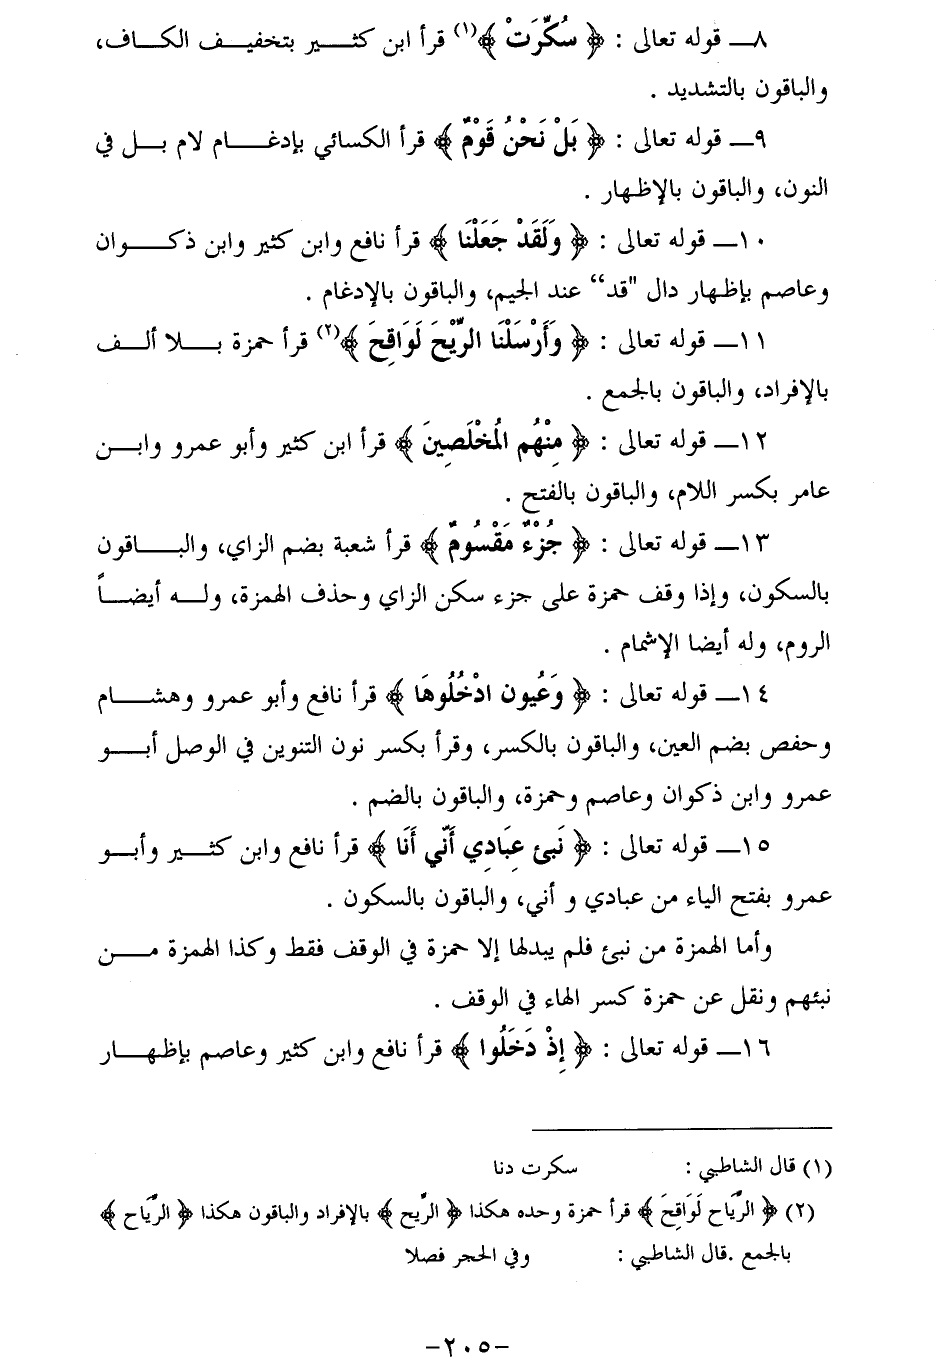 ٨ــ قوله تعالى : ﴿ سُكِّرَتْ ﴾(١) قرأ ابن كثـــير بتخفيـف الكـاف،
والباقون بالتشديد .
٩ــ قوله تعالى : ﴿ بَلْ نَحْنُ قَوْمٌ ﴾ قرأ الكسائي بإدغـــام لام بـــل في
النون، والباقون بالإظهار .
١٠ــ قوله تعالى : ﴿ وَلَقَدْ جَعَلْنَا ﴾ قرأ نافع وابن كثير وابن ذكـــوان
وعاصم بإظهار دال "قد“ عند الجيم، والباقون بالإدغام .
١١ــ قوله تعالى : ﴿ وَأَرْسَلْنَا الرِّيْحَ لَوَاقِحَ ﴾(٢) قرأ حمزة بـــلا ألـف
بالإفراد، والباقون بالجمع .
١٢ــ قوله تعالى : ﴿ مِنْهُم المُخْلَصِينَ ﴾ قرأ ابن كثير وأبو عمرو وابـــن
عامر بكسر اللام، والباقون بالفتح .
١٣ــ قوله تعالى : ﴿ جُزْءٌ مَقْسُومٌ ﴾ قرأ شعبة بضم الزاي، والبـــاقون
بالسكون، وإذا وقف حمزة على جزء سكن الزاي وحذف الهمزة، ولـــه أيضـــاً
الروم، وله أيضا الإشمام .
١٤ــ قوله تعالى : ﴿ وَعُيون ادْخُلُوهَا ﴾ قرأ نافع وأبو عمرو وهشـــام
وحفص بضم العين، والباقون بالكسر، وقرأ بكسر نون التنوين في الوصل أبـــو
عمرو وابن ذكوان وعاصم وحمزة، والباقون بالضم .
١٥ــ قوله تعالى : ﴿ نَبئ عِبَادِي أَنّي أَنَا ﴾ قرأ نافع وابن كثـــير وأبـــو
عمرو بفتح الياء من عبادي و أني، والباقون بالسكون .
وأما الهمزة من نبئ فلم يبدلها إلا حمزة في الوقف فقط وكذا الهمزة مـــن
نبئهم ونقل عن حمزة كسر الهاء في الوقف .
١٦ــ قوله تعالى : ﴿ إِذْ دَخَلُوا ﴾ قرأ نافع وابن كثير وعاصم بإظهـــار
(١) قال الشاطبي : سكرت دنا
(٢) ﴿ الرِّيَاح لَوَاقِحَ ﴾ قرأ حمزة وحده هكذا ﴿ الرِّيح ﴾ بالإفراد والباقون هكذا ﴿ الرِّيَاح ﴾
بالجمع .قال الشاطبي : وفي الحجر فصلا
-٢٠٥-